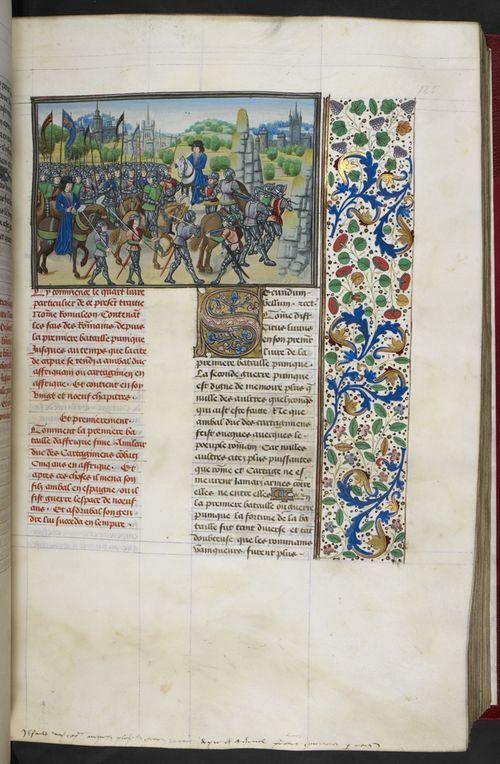 Cy commence le quart livre
particulier de ce present traitie
Nomme Romuleon. Contenant
les fais des Rommains depuis
la premiere bataille punique
Jusques au temps que la cite
de capue se rendi a anibal duc
affriquam ou cartagien en
affrique. Et contient en soy
vingt et noeuf chapitres.
Et premierement.
Comment la premiere ba
taille daffrique finie Amilcar
duc des Cartagiens cobati
Cinq ans en affrique. Et
apres ces choses il mena son
filz anibal en espaigne ou il
fist guerre lespace de noeuf
ans. Et asdrubal son gen
dre lui succeda en lempire.
Secundum
bellum. &c.
Tome dist
Titus livius
en son premier
livre de la
premiere bataille punique.
La seconde guerre punique
est digne de memoire plus q
nulle des aultres quelconqs
qui ait este faitte Ne que
anibal duc des cartagiens
feist oncques avecques le
peuple romain. Car nulles
aultres citez plus puissantes
que romme et Cartage ne es
meurent Jamais armes contre
elles ne entre elles En
la premiere bataille ou guerre
punique la fortune de la ba
taille fut tant diverse et tat
doubteuse que les rommains
vainqueurs furent plus